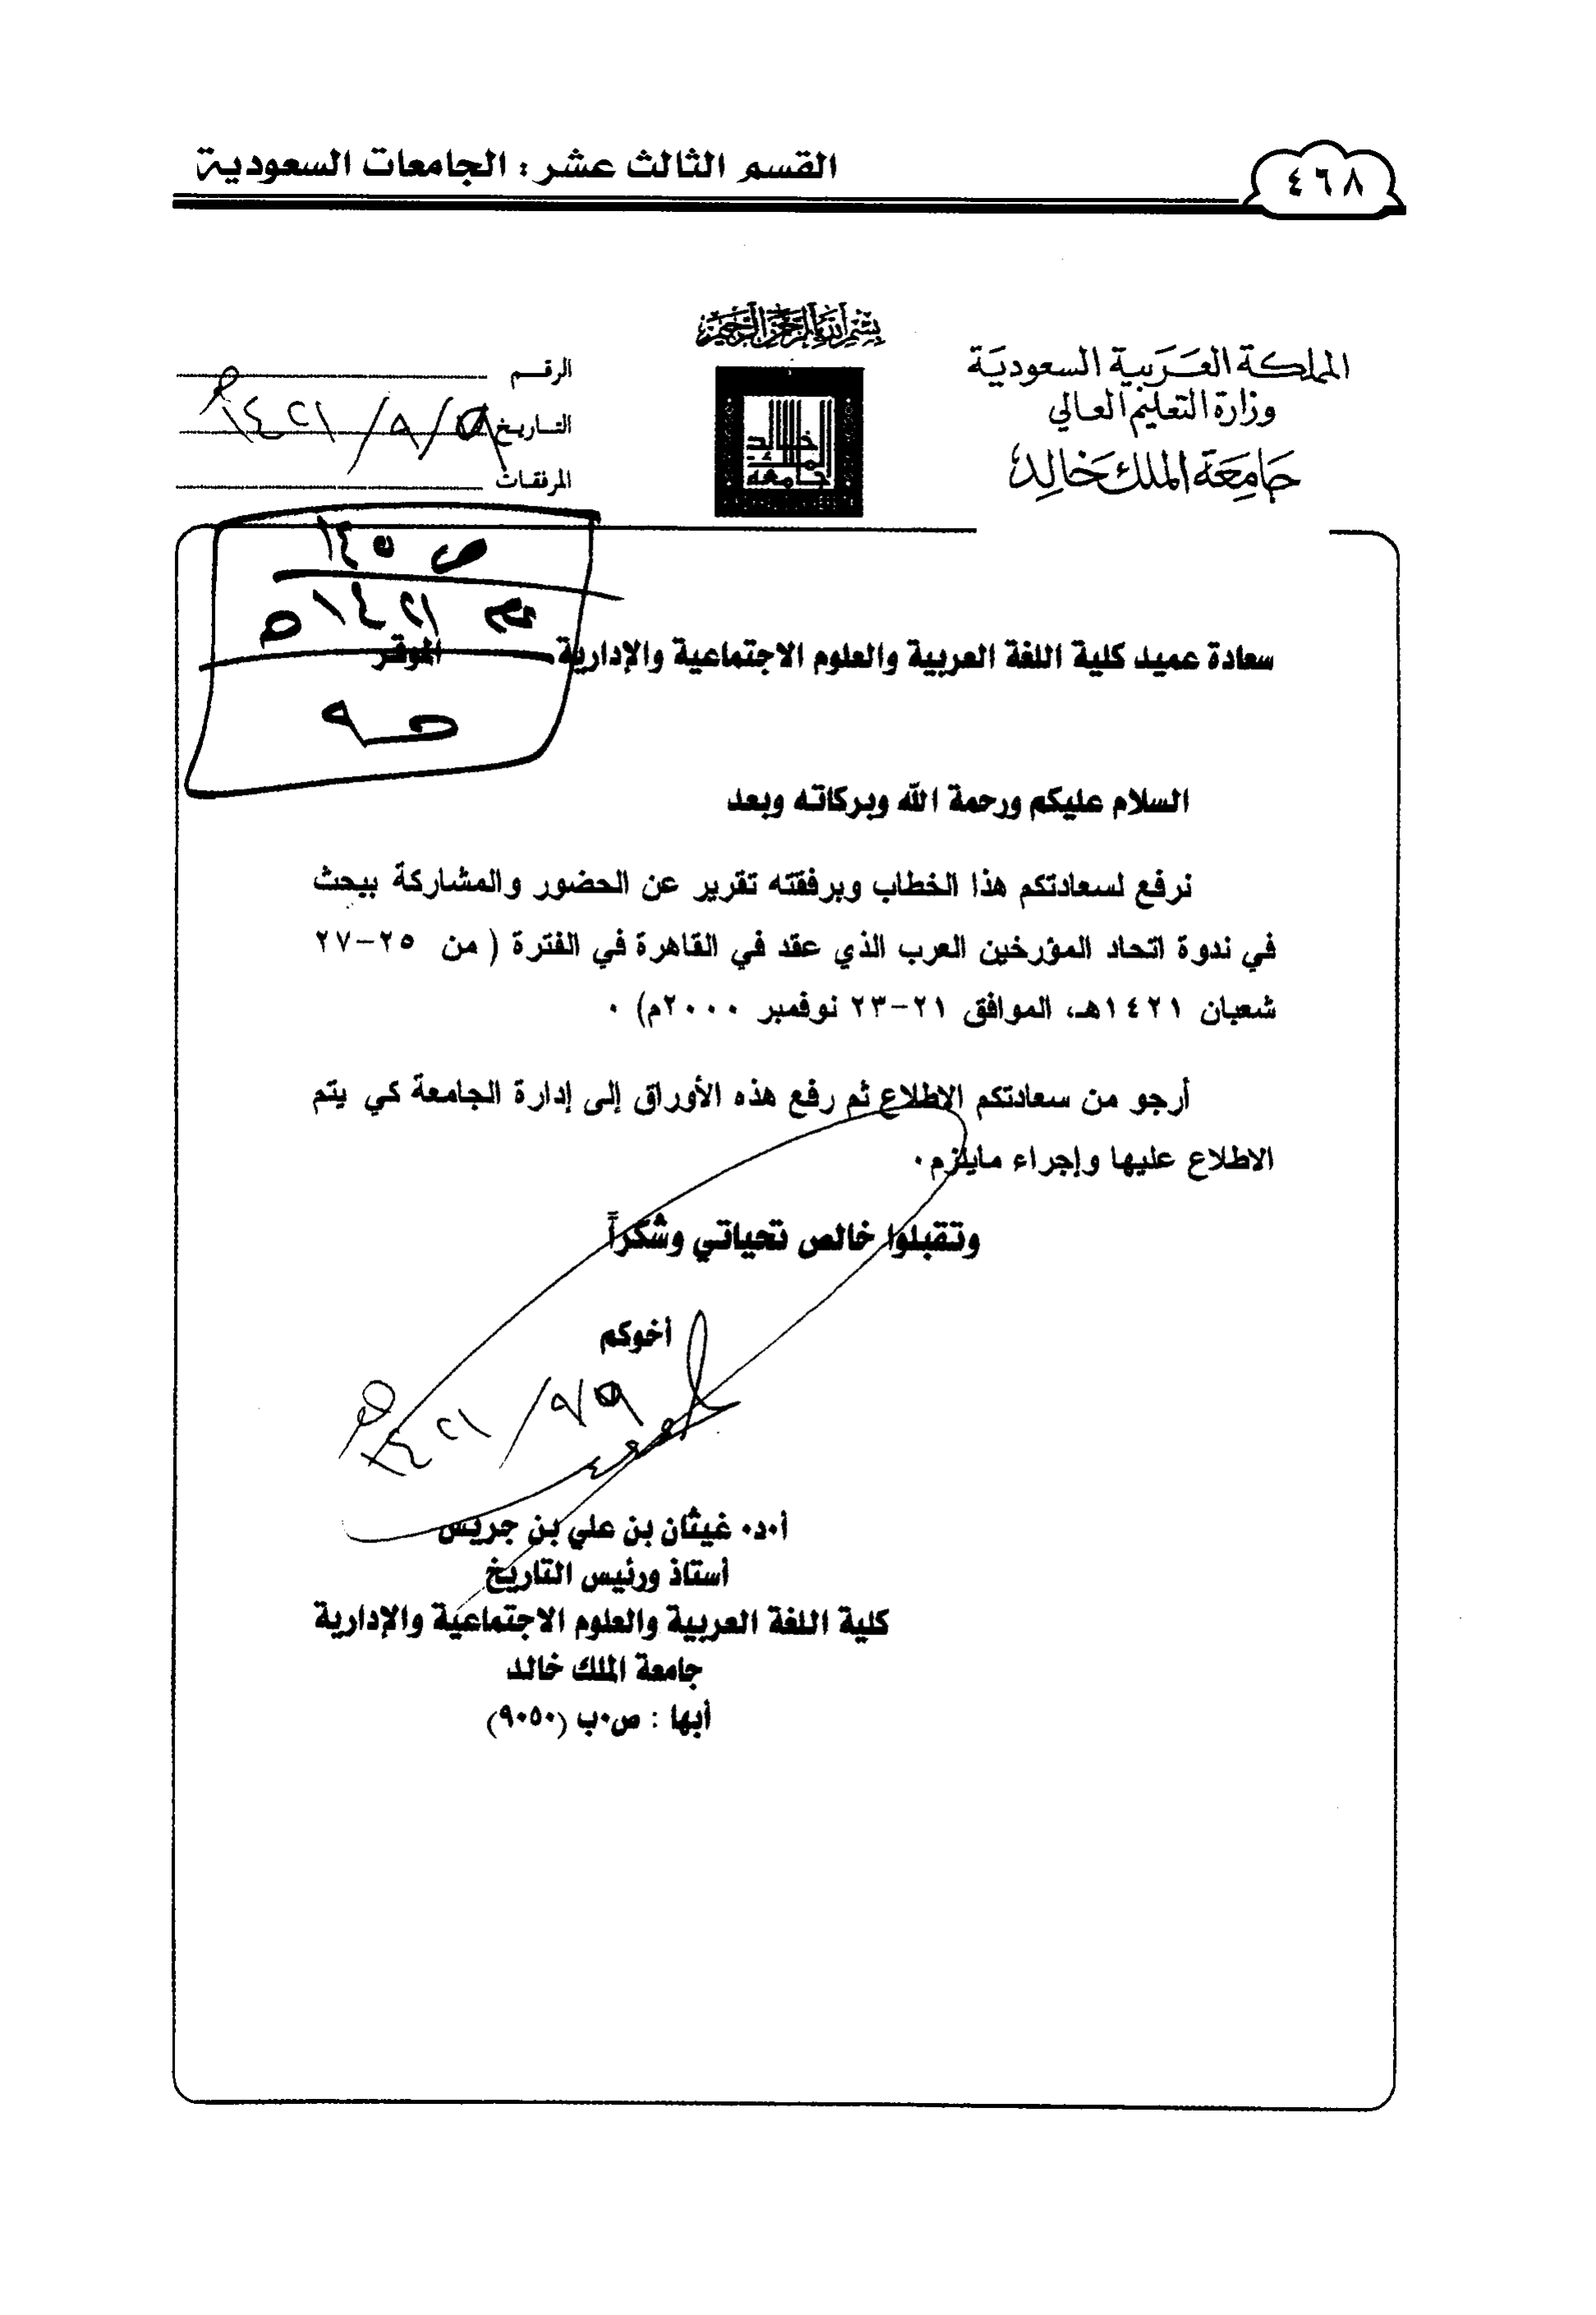 القسم الثالث عشر: الجامعات السعودية
٤٦٨
بسم الله الرحمن الرحيم
المملكة العربية السعودية
وزارة التعليم العالي
جامعة الملك خالد
جامعة الملك خالد
الرقم
التاريخ / ٩ / ١٤٢١هـ
المرفقات
ص ١٤٠٥
م ١٤٢١هـ
سعادة عميد كلية اللغة العربية والعلوم الاجتماعية والإدارية الموقر
السلام عليكم ورحمة الله وبركاته وبعد
نرفع لسعادتكم هذا الخطاب وبرفقته تقرير عن الحضور والمشاركة ببحث
في ندوة اتحاد المؤرخين العرب الذي عقد في القاهرة في الفترة ( من ٢٥-٢٧
شعبان ١٤٢١هـ، الموافق ٢١-٢٣ نوفمبر ٢٠٠٠م) ٠
أرجو من سعادتكم الاطلاع ثم رفع هذه الأوراق إلى إدارة الجامعة كي يتم
الاطلاع عليها وإجراء مايلزم٠
وتقبلوا خالص تحياتي وشكراً
أخوكم
١٤٢١هـ
أ٠د٠ غيثان بن علي بن جريس
أستاذ ورئيس التاريخ
كلية اللغة العربية والعلوم الاجتماعية والإدارية
جامعة الملك خالد
أبها : ص٠ب (٩٠٥٠)